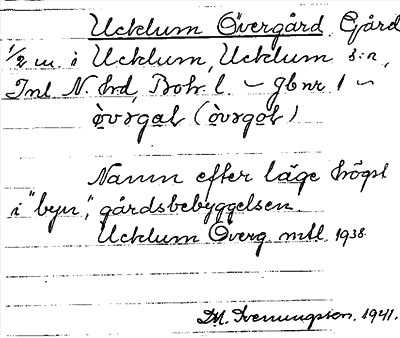 Ucklum Övergård, Gård
1/2 m. i Ucklum, Ucklum s:n,
Inl N. hd, Boh. l. – Jbnr 1 –
òvərgaḷ (òvərgoḷ)
Namn efter läge högst
i "byn", gårdsbebyggelsen.
Ucklum Överg mtl. 1938
D.N. Svenungsson. 1941.